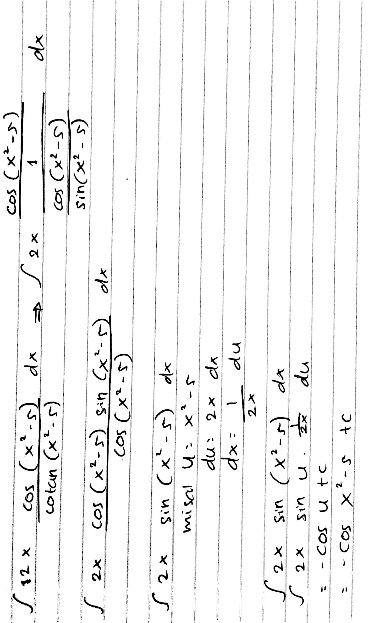 ∫ 12x cos (x² - 5) / cotan (x² - 5) dx ⇒ ∫ 2x (cos (x² - 5) / 1) / (cos (x² - 5) / sin (x² - 5)) dx
∫ 2x cos (x² - 5) sin (x² - 5) / cos (x² - 5) dx
∫ 2x sin (x² - 5) dx
misal u = x² - 5
du = 2x dx
dx = 1 / 2x du
∫ 2x sin (x² - 5) dx
∫ 2x sin u . 1/2x du
= - cos u + c
= - cos x² - 5 + c